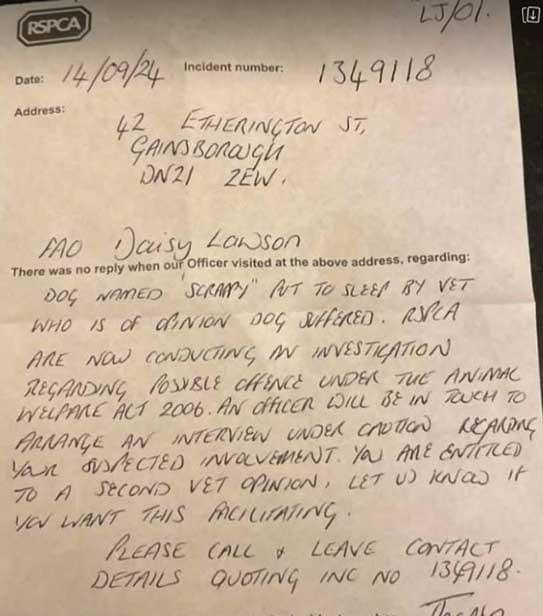 RSPCA
LJ/01.
Date: 14/09/24 Incident number: 1349118
Address:
42 ETHERINGTON ST,
GAINSBOROUGH
DN21 2EW.
FAO Daisy Lawson
There was no reply when our Officer visited at the above address, regarding:
DOG NAMED "SCRAPPY" PUT TO SLEEP BY VET
WHO IS OF OPINION DOG SUFFERED. RSPCA
ARE NOW CONDUCTING AN INVESTIGATION
REGARDING POSSIBLE OFFENCE UNDER THE ANIMAL
WELFARE ACT 2006. AN OFFICER WILL BE IN TOUCH TO
ARRANGE AN INTERVIEW UNDER CAUTION REGARDING
YOUR SUSPECTED INVOLVEMENT. YOU ARE ENTITLED
TO A SECOND VET OPINION, LET US KNOW IF
YOU WANT THIS FACILITATING.
PLEASE CALL & LEAVE CONTACT
DETAILS QUOTING INC NO 1349118.